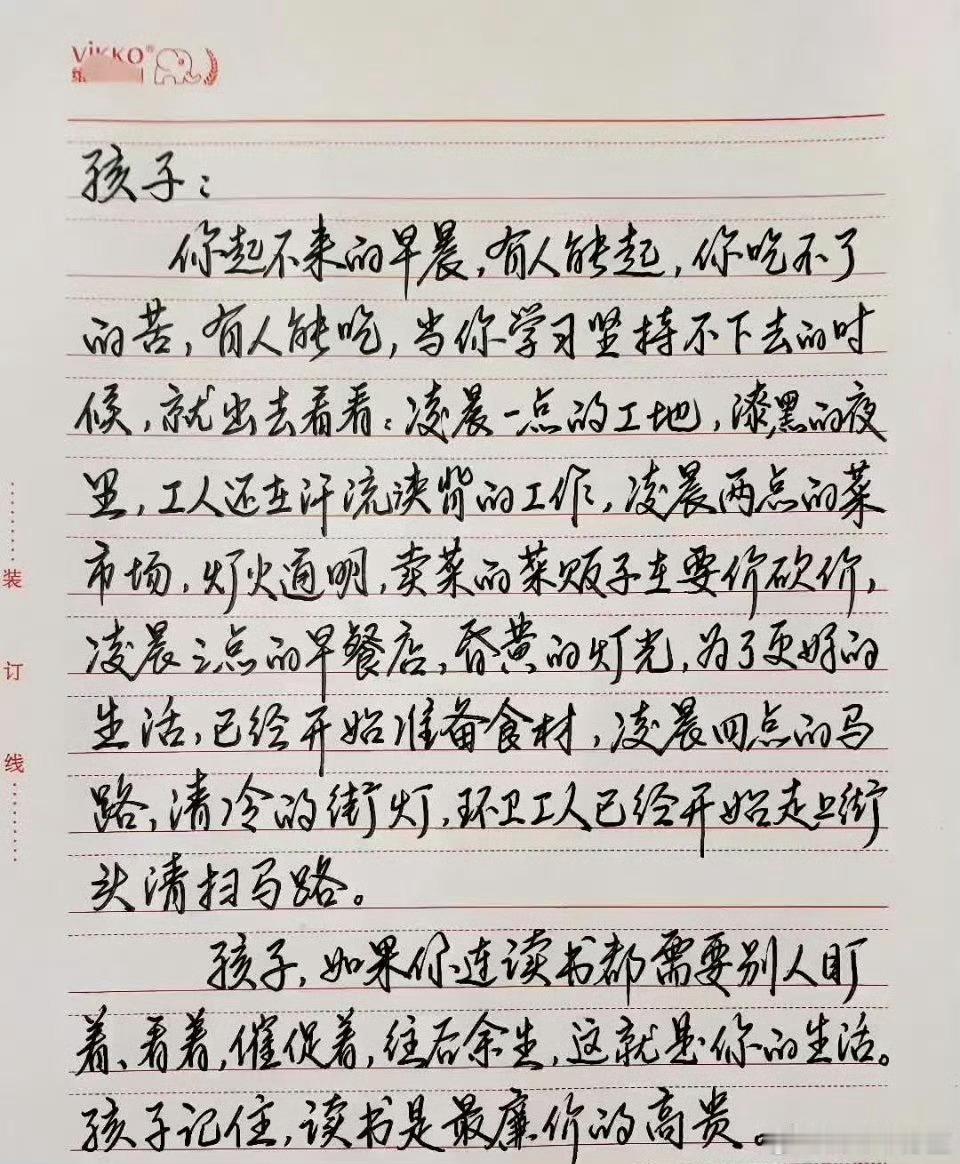 VikKO®
孩子：
你起不来的早晨，有人能起，你吃不了
的苦，有人能吃，当你学习坚持不下去的时
候，就出去看看：凌晨一点的工地，漆黑的夜
里，工人还在汗流浃背的工作，凌晨两点的菜
市场，灯火通明，卖菜的菜贩子在要价砍价，
凌晨三点的早餐店，昏黄的灯光，为了更好的
生活，已经开始准备食材，凌晨四点的马
路，清冷的街灯，环卫工人已经开始走上街
头清扫马路。
孩子，如果你连读书都需要别人盯
着、看着，催促着，往后余生，这就是你的生活。
孩子记住，读书是最廉价的高贵。
装
订
线